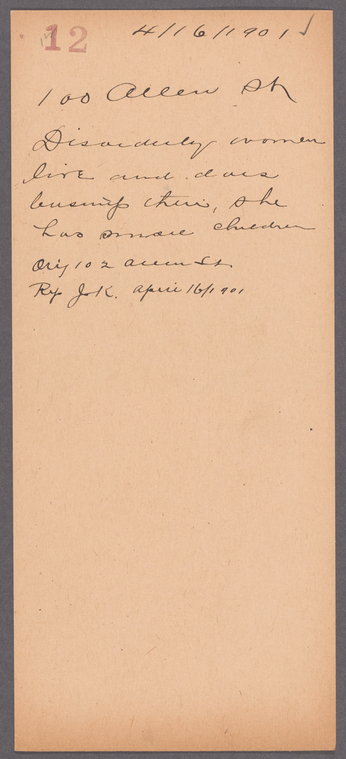 12 4/16/1901 ✓
100 Allen St
Disorderly women
live and does
business there, she
has small children
Orig 102 Allen St.
Rp J.K. April 16/1901